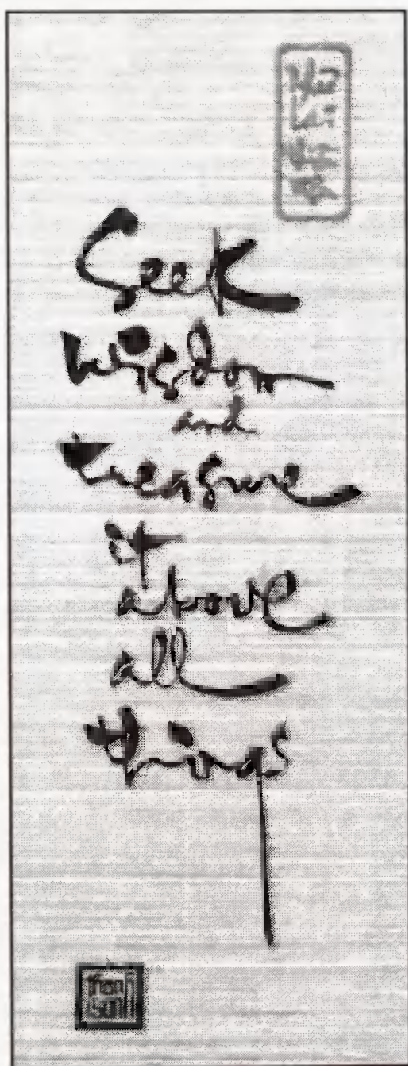 Seek
wisdom
and
treasure
it
above
all
things